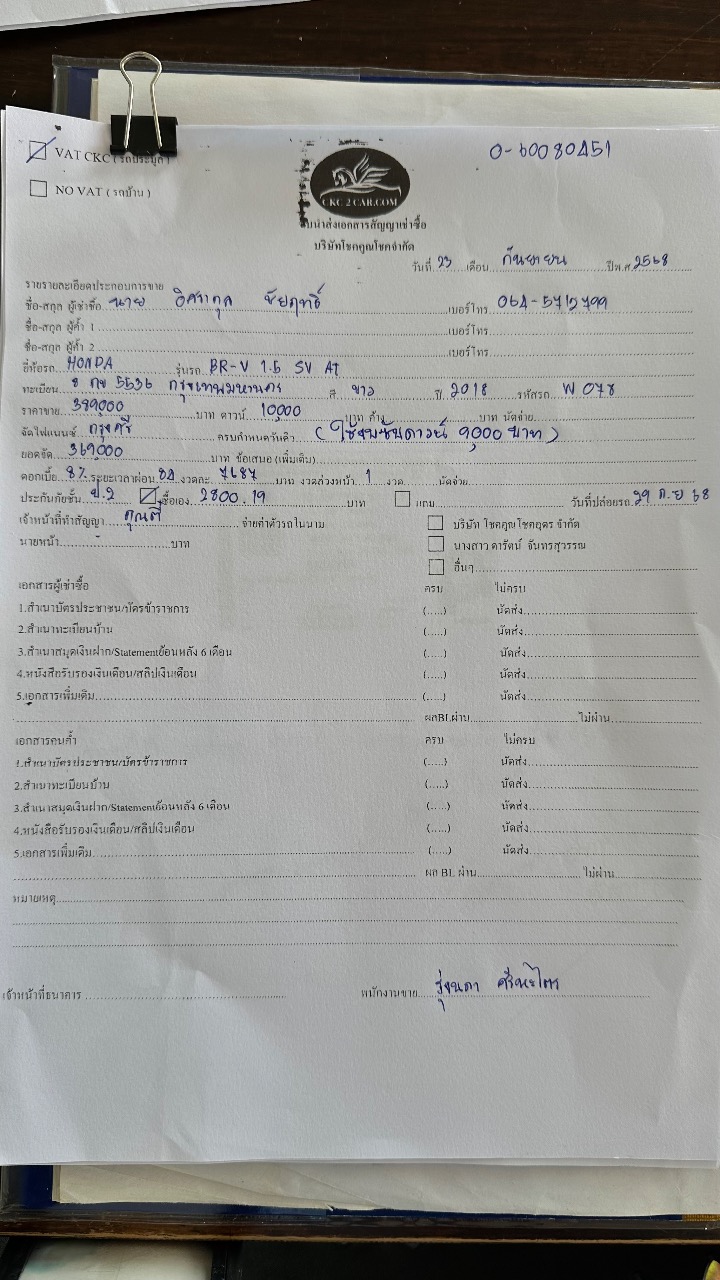 VAT CKC ( รถประมูล )
0-60080451
NO VAT ( รถบ้าน )
CKC 2 CAR.COM
ใบนำส่งเอกสารสัญญาเช่าซื้อ
บริษัทโชคคูณโชคจำกัด
วันที่ 23 เดือน กันยายน ปีพ.ศ. 2568
รายรายละเอียดประกอบการขาย
ชื่อ-สกุล ผู้เช่าซื้อ นาย ชัยฤทธิ์ เบอร์โทร 064-5712799
ชื่อ-สกุล ผู้ค้ำ 1 เบอร์โทร
ชื่อ-สกุล ผู้ค้ำ 2 เบอร์โทร
ยี่ห้อรถ HONDA รุ่นรถ BR-V 1.5 SV AT
ทะเบียน 8 กข 5536 กรุงเทพมหานคร สี ขาว ปี 2018 รหัสรถ W 078
ราคาขาย 389,000 บาท ดาวน์ 10,000 บาท ค้าง บาท นัดจ่าย
จัดไฟแนนซ์ กรุงศรี ครบกำหนดวันคิว (ใช้งบซับดาวน์ 9,000 บาท)
ยอดจัด 369,000 บาท ข้อเสนอ (เพิ่มเติม)
ดอกเบี้ย 8% ระยะเวลาผ่อน 84 งวดละ 7687 บาท งวดล่วงหน้า 1 งวด นัดจ่าย
ประกันภัยชั้น ป.2 ซื้อเอง 2800.19 บาท แถม วันที่ปล่อยรถ 29 ก.ย 68
เจ้าหน้าที่ทำสัญญา คุณตี๋ จ่ายค่าตัวรถในนาม บริษัท โชคคูณโชคอุดร จำกัด
นายหน้า บาท นางสาว ดารัตน์ จันทรสุวรรณ
อื่นๆ
เอกสารผู้เช่าซื้อ ครบ ไม่ครบ
1.สำเนาบัตรประชาชน/บัตรข้าราชการ (.....) นัดส่ง
2.สำเนาทะเบียนบ้าน (.....) นัดส่ง
3.สำเนาสมุดเงินฝาก/Statementย้อนหลัง 6 เดือน (.....) นัดส่ง
4.หนังสือรับรองเงินเดือน/สลิปเงินเดือน (.....) นัดส่ง
5.เอกสารเพิ่มเติม (.....) นัดส่ง
ผลBLผ่าน ไม่ผ่าน
เอกสารคนค้ำ ครบ ไม่ครบ
1.สำเนาบัตรประชาชน/บัตรข้าราชการ (.....) นัดส่ง
2.สำเนาทะเบียนบ้าน (.....) นัดส่ง
3.สำเนาสมุดเงินฝาก/Statementย้อนหลัง 6 เดือน (.....) นัดส่ง
4.หนังสือรับรองเงินเดือน/สลิปเงินเดือน (.....) นัดส่ง
5.เอกสารเพิ่มเติม (.....) นัดส่ง
ผล BL ผ่าน ไม่ผ่าน
หมายเหตุ
เจ้าหน้าที่ธนาคาร พนักงานขาย รุ่งนภา